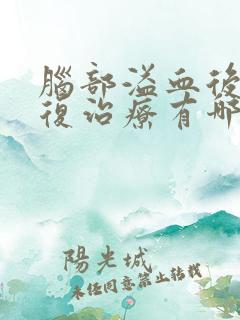 腦部溢血後
復治療有哪
陽光城
未經同意禁止轉載